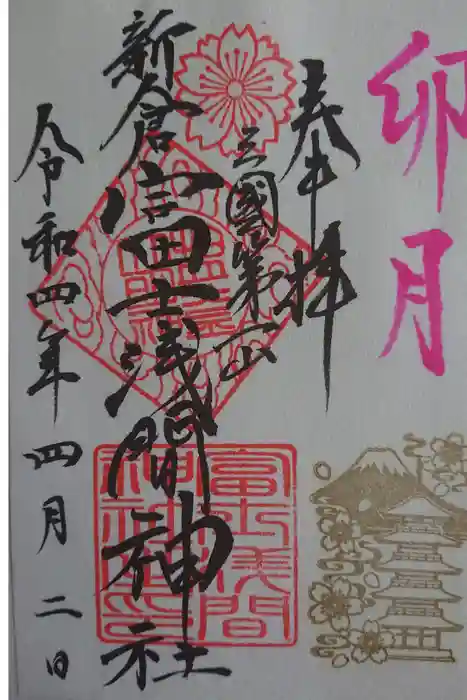 卯月
奉拝
三國第一山
新倉富士浅間神社
富士浅間
神社御印
令和四年四月二日